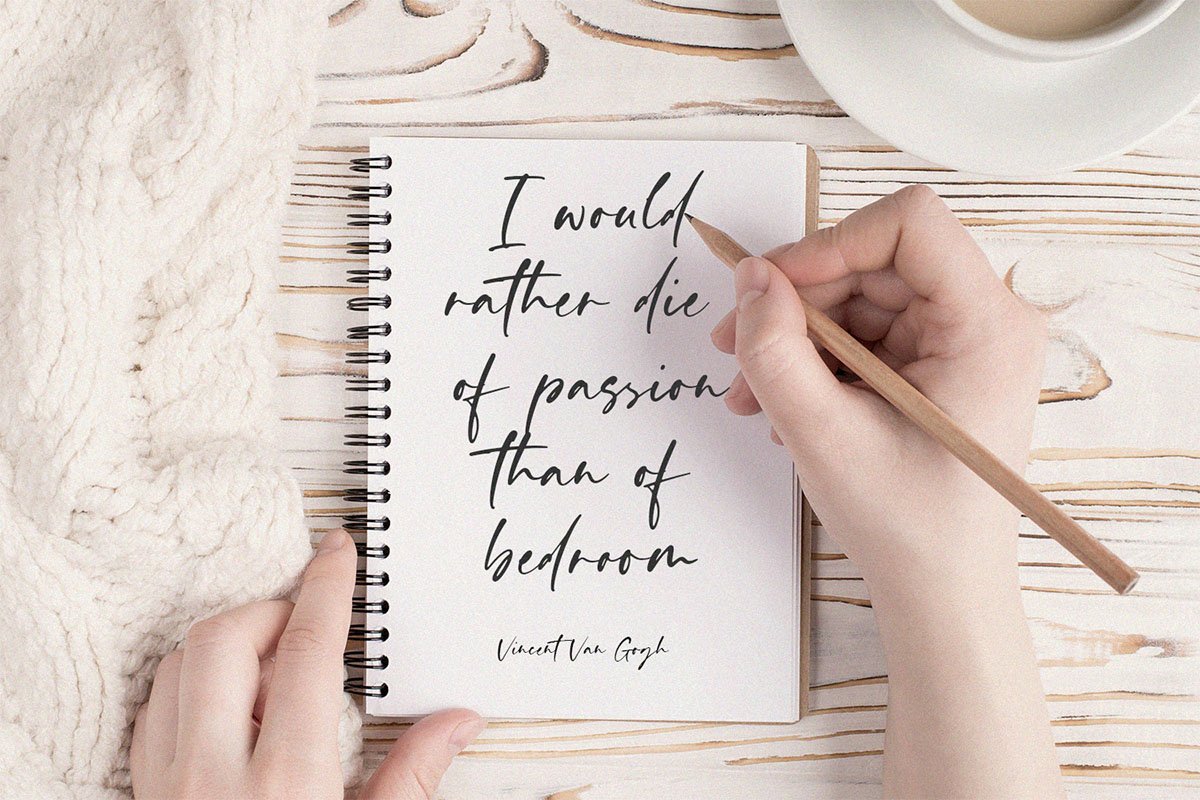 I would
rather die
of passion
than of
bedroom
Vincent Van Gogh